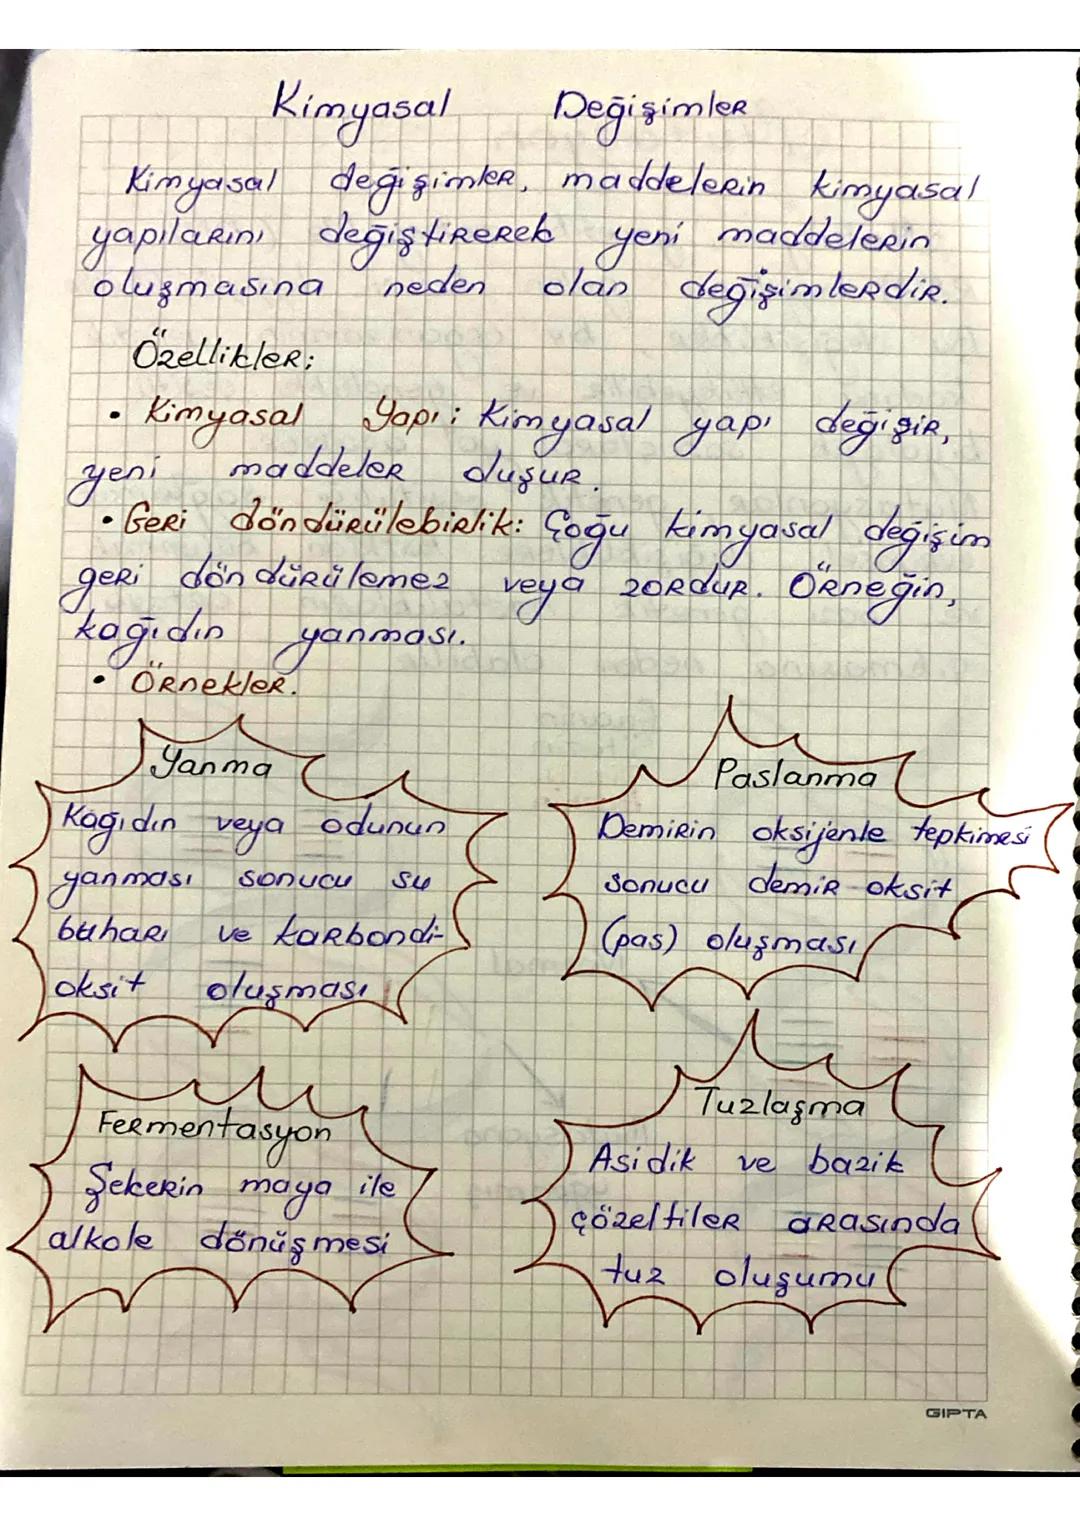 Kimyasal Değişimler
Kimyasal değişimler, maddelerin kimyasal
yapılarını değiştirerek yeni maddelerin
oluşmasına neden olan değişimlerdir.
Özellikler:
• Kimyasal Yapı: Kimyasal yapı değişir,
yeni maddeler oluşur.
• Geri döndürülebirlik: Çoğu kimyasal değişim
geri döndürülemez veya zordur. Örneğin,
kağıdın yanması.
• Örnekler.
Yanma
Kağıdın veya odunun
yanması sonucu su
buharı ve karbondi-
oksit oluşması
Paslanma
Demirin oksijenle tepkimesi
sonucu demir oksit
(pas) oluşması
Fermentasyon
Şekerin maya ile
alkole dönüşmesi
Tuzlaşma
Asidik ve bazik
çözeltiler arasında
tuz oluşumu
GIPTA